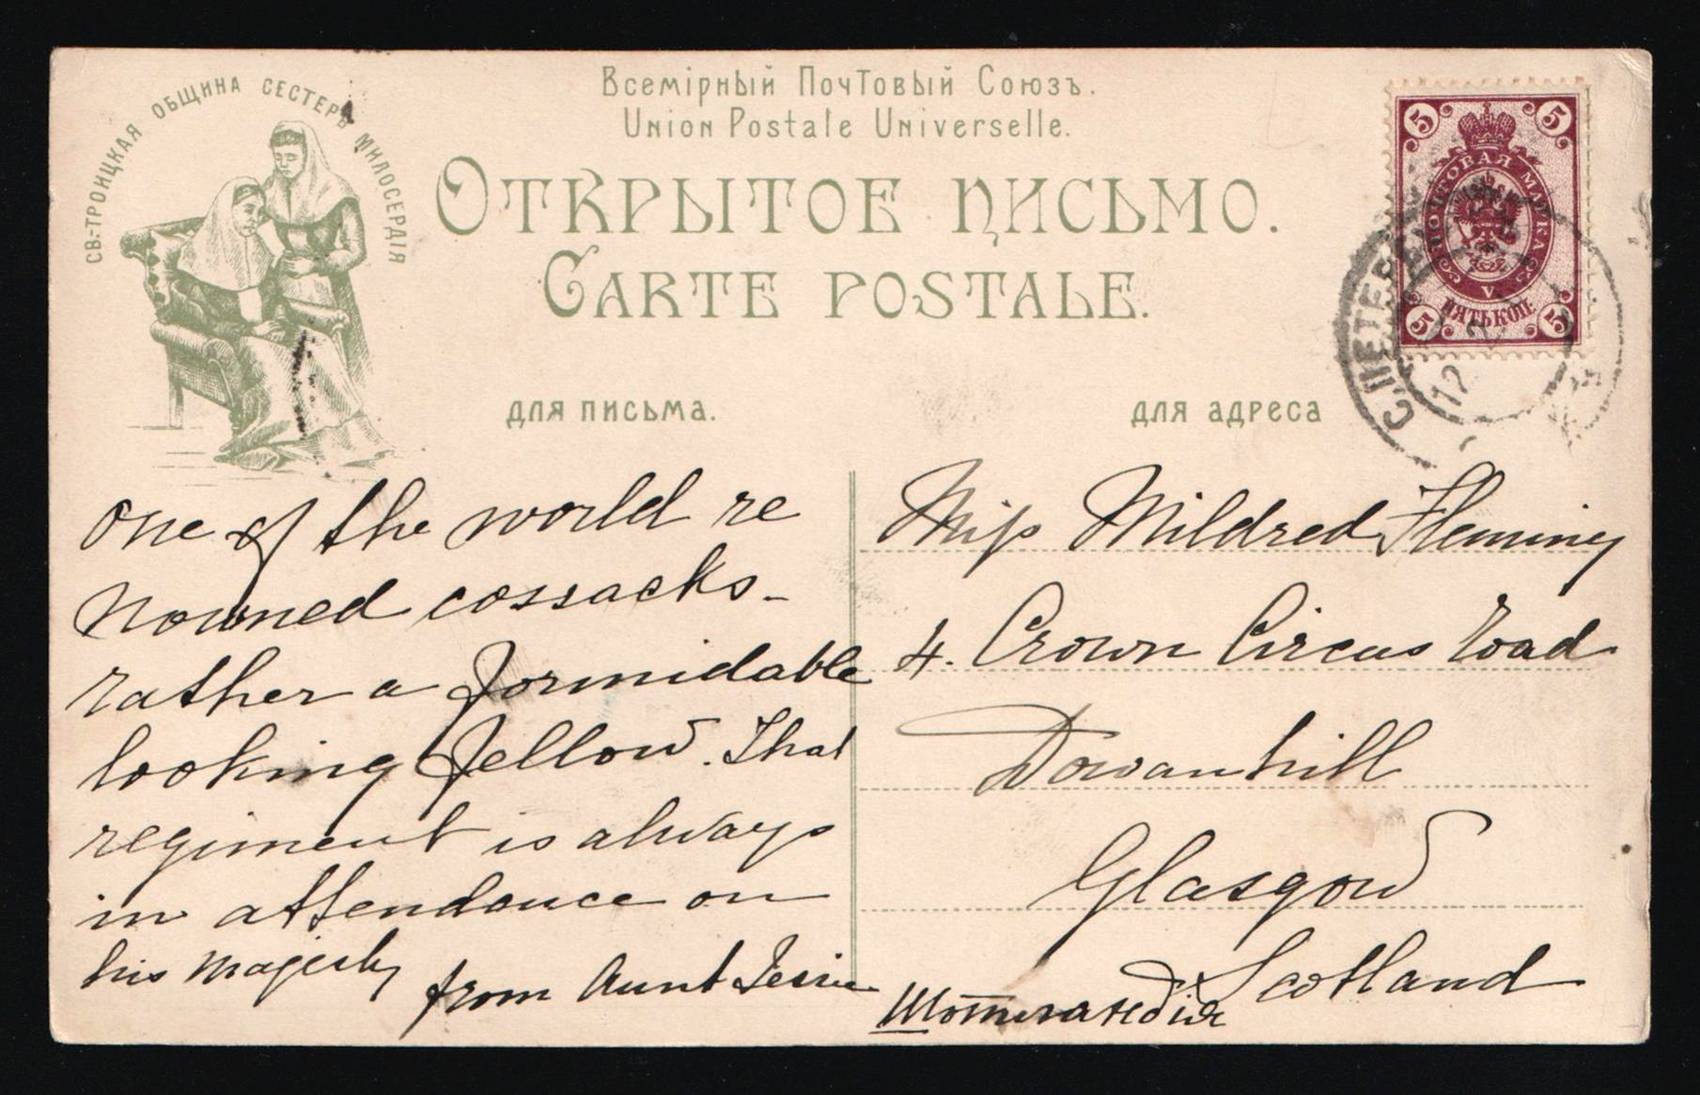 СВ.-ТРОИЦКАЯ ОБЩИНА СЕСТЕРЪ МИЛОСЕРДІЯ
Всемірный Почтовый Союзъ.
Union Postale Universelle.
Открытое письмо.
Carte postale.
для письма.
для адреса
5 5
ПОЧТОВАЯ МАРКА
V
ПЯТЬ КОП.
5 5
С.ПЕТЕРБ
12
one of the world re
nowned cossacks –
rather a formidable
looking fellow. That
regiment is always
in attendance on
his majesty
from Aunt Jessie
Miss Mildred Fleming
4. Crown Circus Road
Dowanhill
Glasgow
Scotland
Шотландія